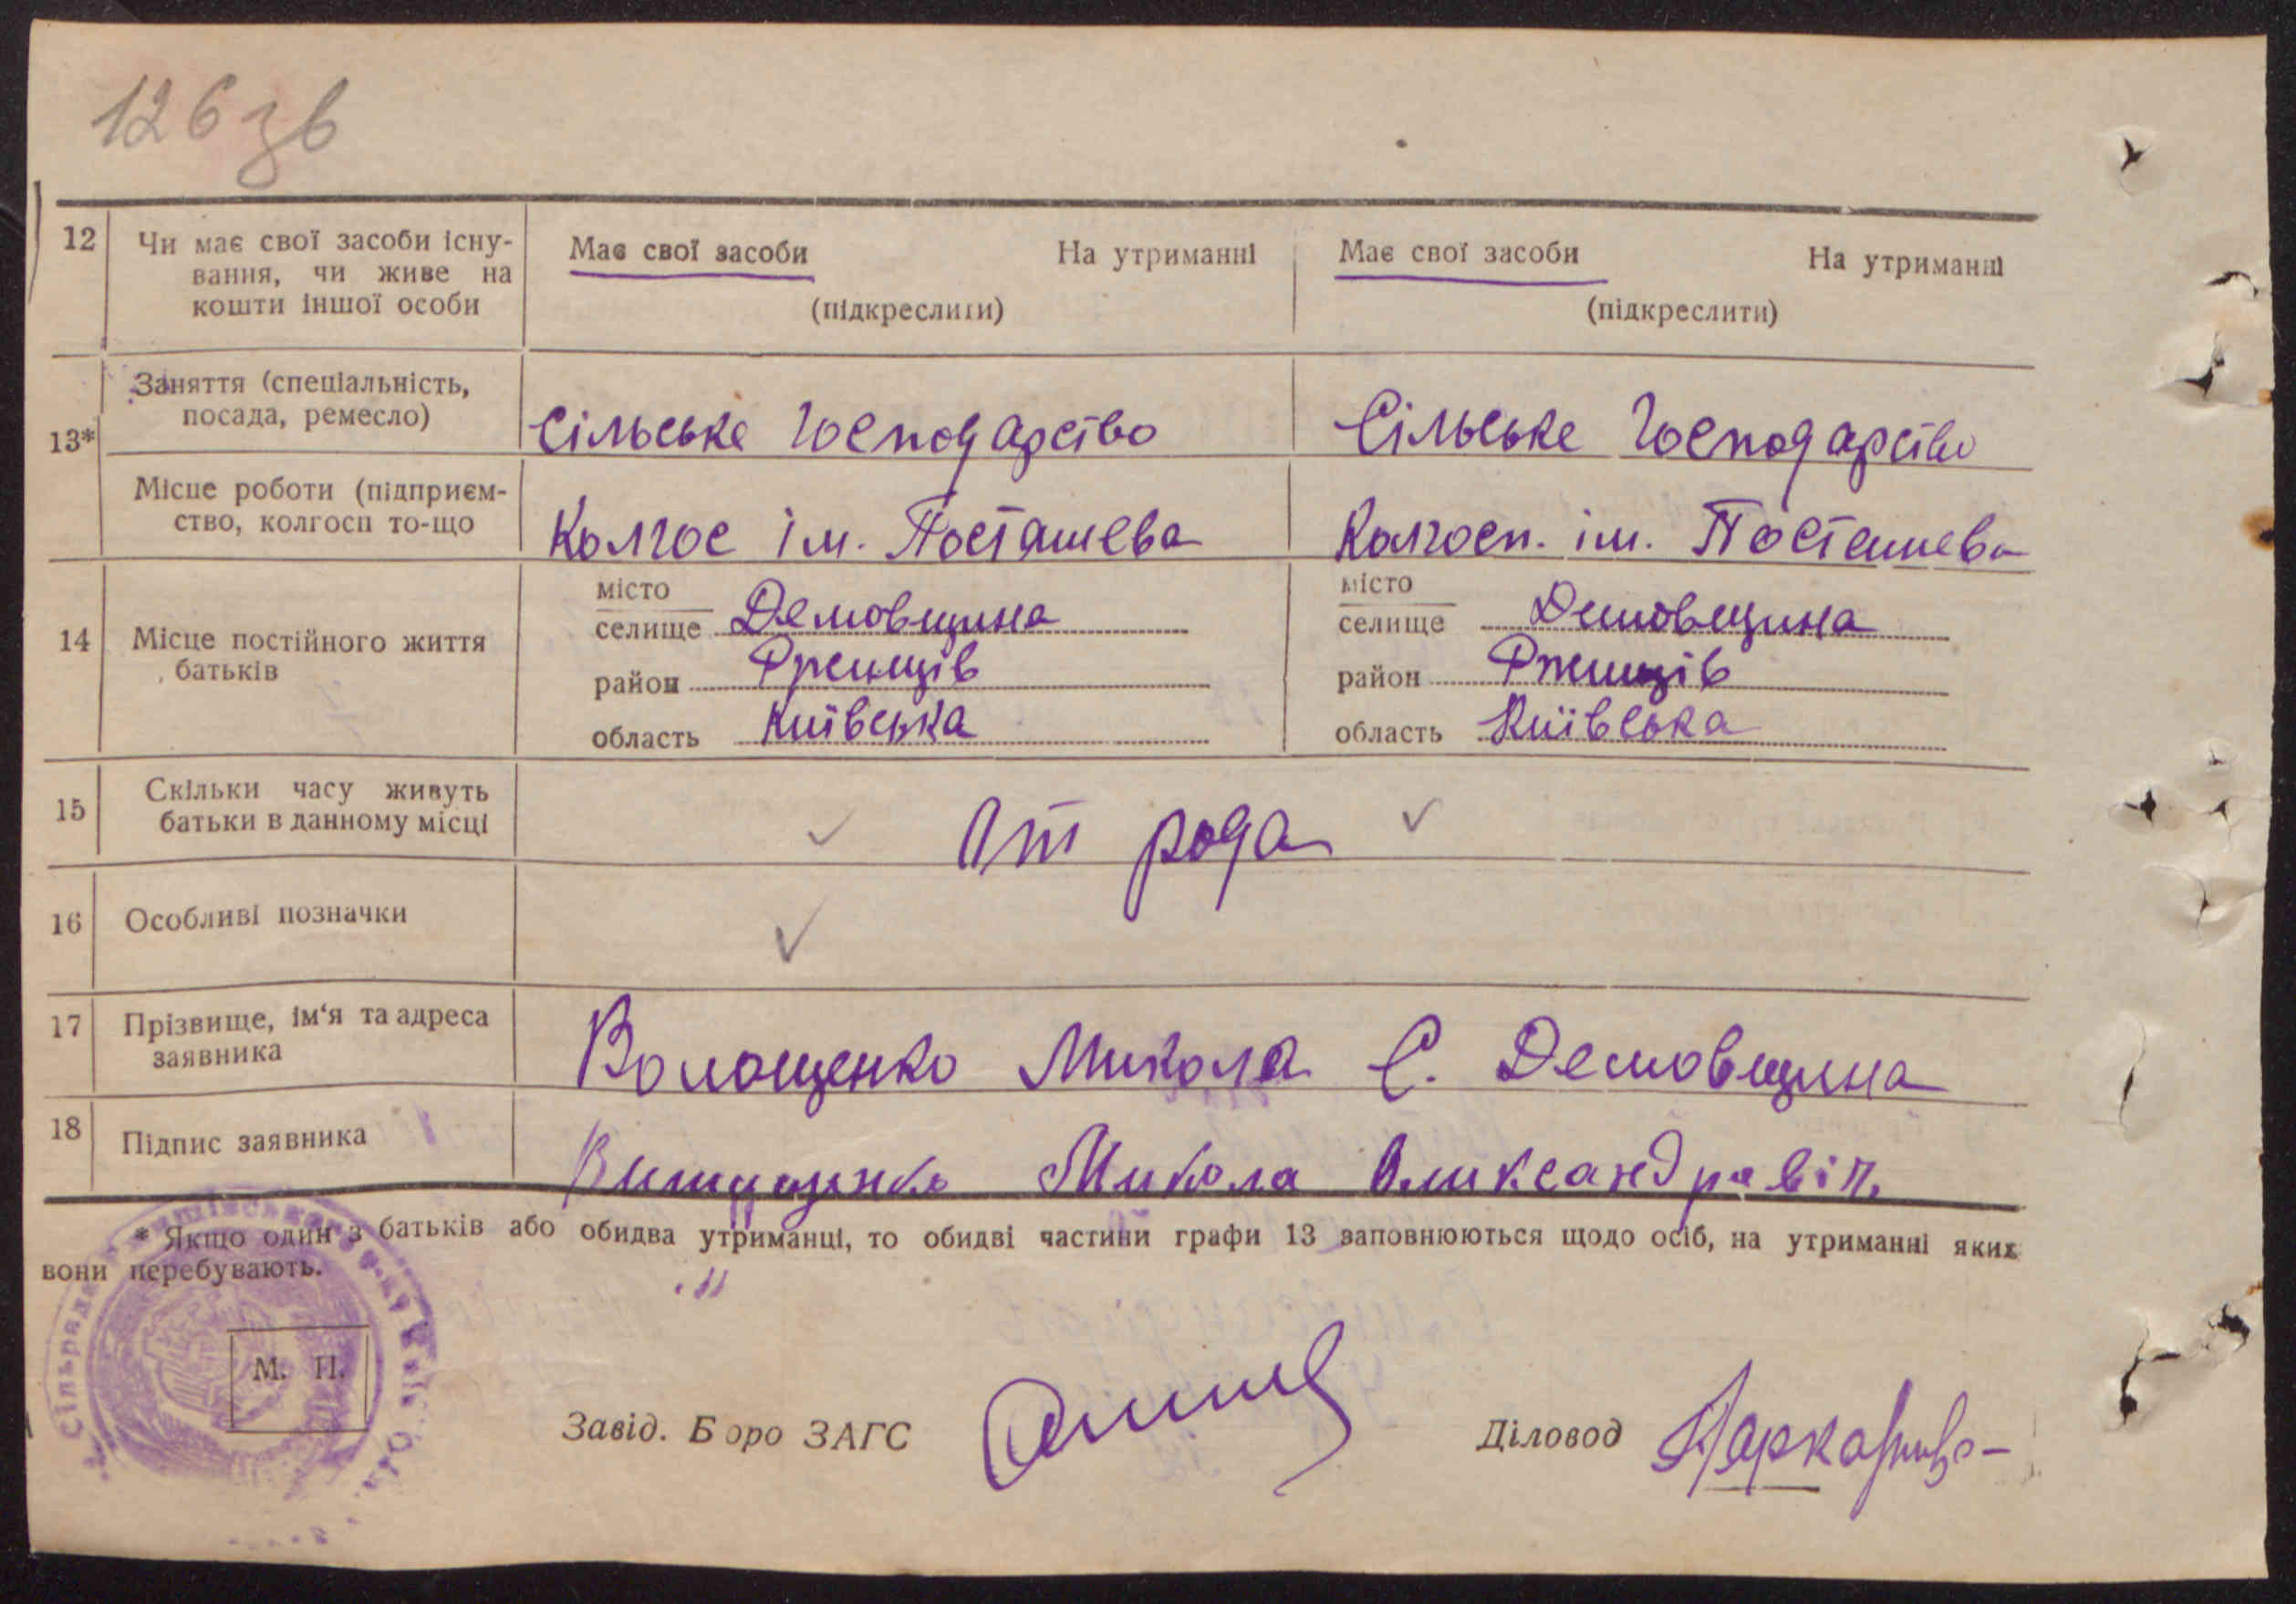 126 зв
12 Чи має свої засоби існу- Має свої засоби На утриманні Має свої засоби На утриманні
вання, чи живе на
кошти іншої особи (підкреслити) (підкреслити)
Заняття (спеціальність,
посада, ремесло) Сільське Господарство Сільське Господарство
13*
Місце роботи (підприєм-
ство, колгосп то-що Колгос ім. Посташева Колгосп. ім. Посташева
14 Місце постійного життя
батьків
місто
селище Демовщина
район
область Київська
місто
селище Демовщина
район Ржищів
область Київська
15 Скільки часу живуть
батьки в данному місці От рода
16 Особливі позначки
17 Прізвище, ім‘я та адреса
заявника Волощенко Микола С. Демовщина
18 Підпис заявника Микола Олександравіп.
* Якщо один з батьків або обидва утриманці, то обидві частини графи 13 заповнюються щодо осіб, на утриманні яких
вони перебувають.
Сільрада
М. П.
Завід. Бюро ЗАГС Діловод